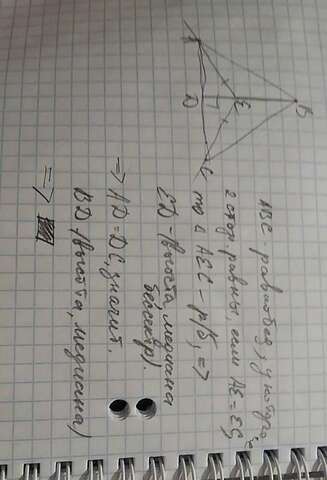 A
D
E
B
C
ABC - равнобед, у которого
2 стор. равны, если AE = EC,
то △ AEC - р/б, =>
ED - (высота, медиана
биссектр).
→ AD = DC, значит,
BD - (высота, медиана)
=>